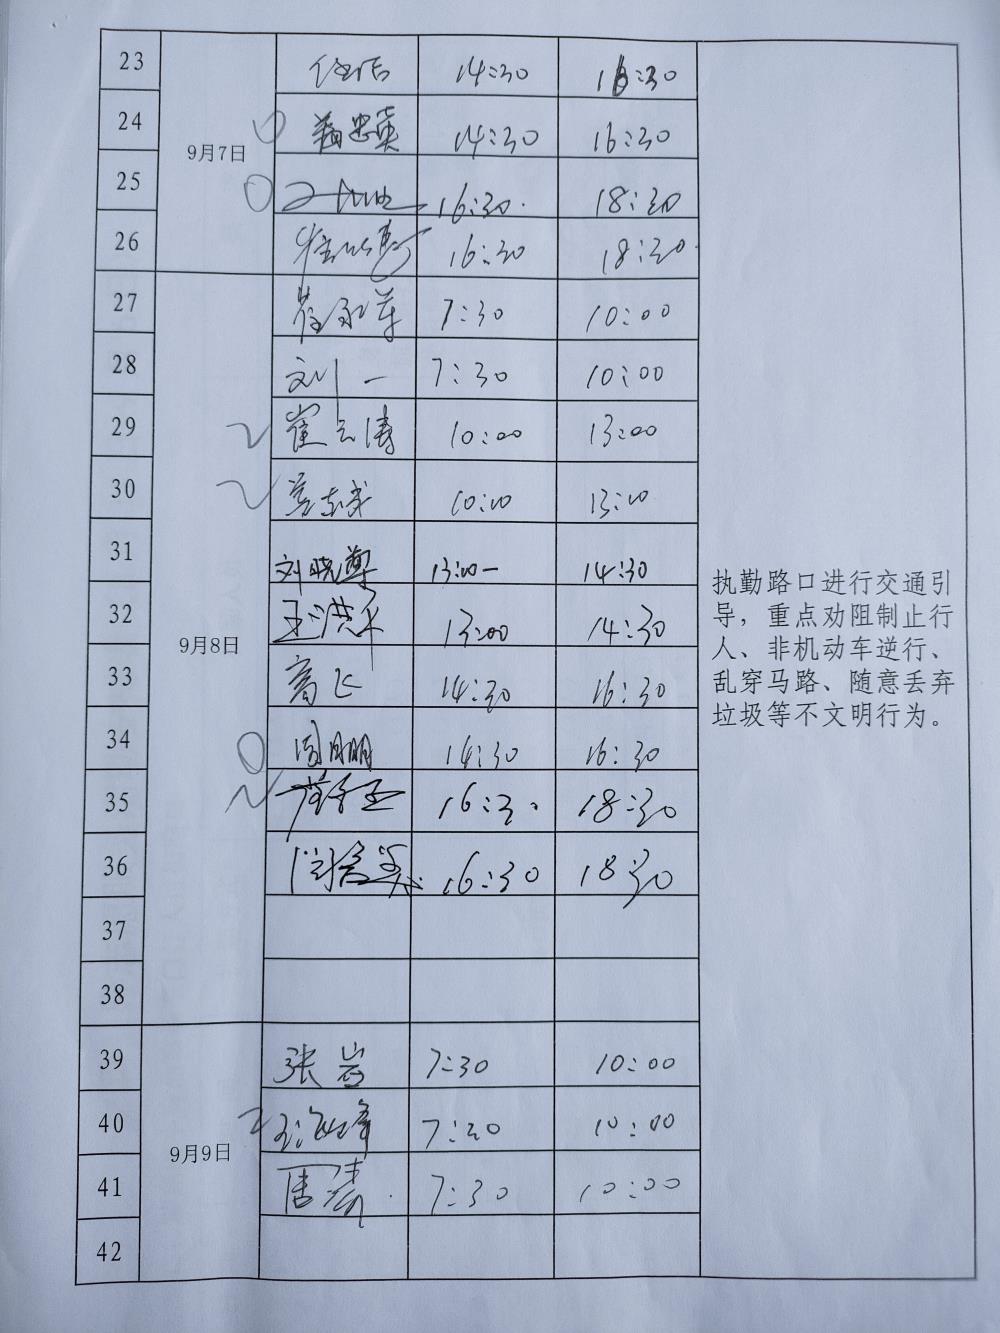 23 14:30 16:30
24 14:30 16:30
9月7日
25 16:30. 18:30
26 16:30 18:30
27 7:30 10:00
28 刘一 7:30 10:00
29 崔云涛 10:00 13:00
30 10:00 13:00
31 刘晓 13:00- 14:30
32 13:00 14:30
33 高飞 14:30 16:30
9月8日
34 周明 14:30 16:30
35 16:3. 18:30
36 16:30 18:30
37
38
39 张岩 7:30 10:00
40 7:30 10:00
9月9日
41 周涛 7:30 10:00
42
执勤路口进行交通引
导，重点劝阻制止行
人、非机动车逆行、
乱穿马路、随意丢弃
垃圾等不文明行为。